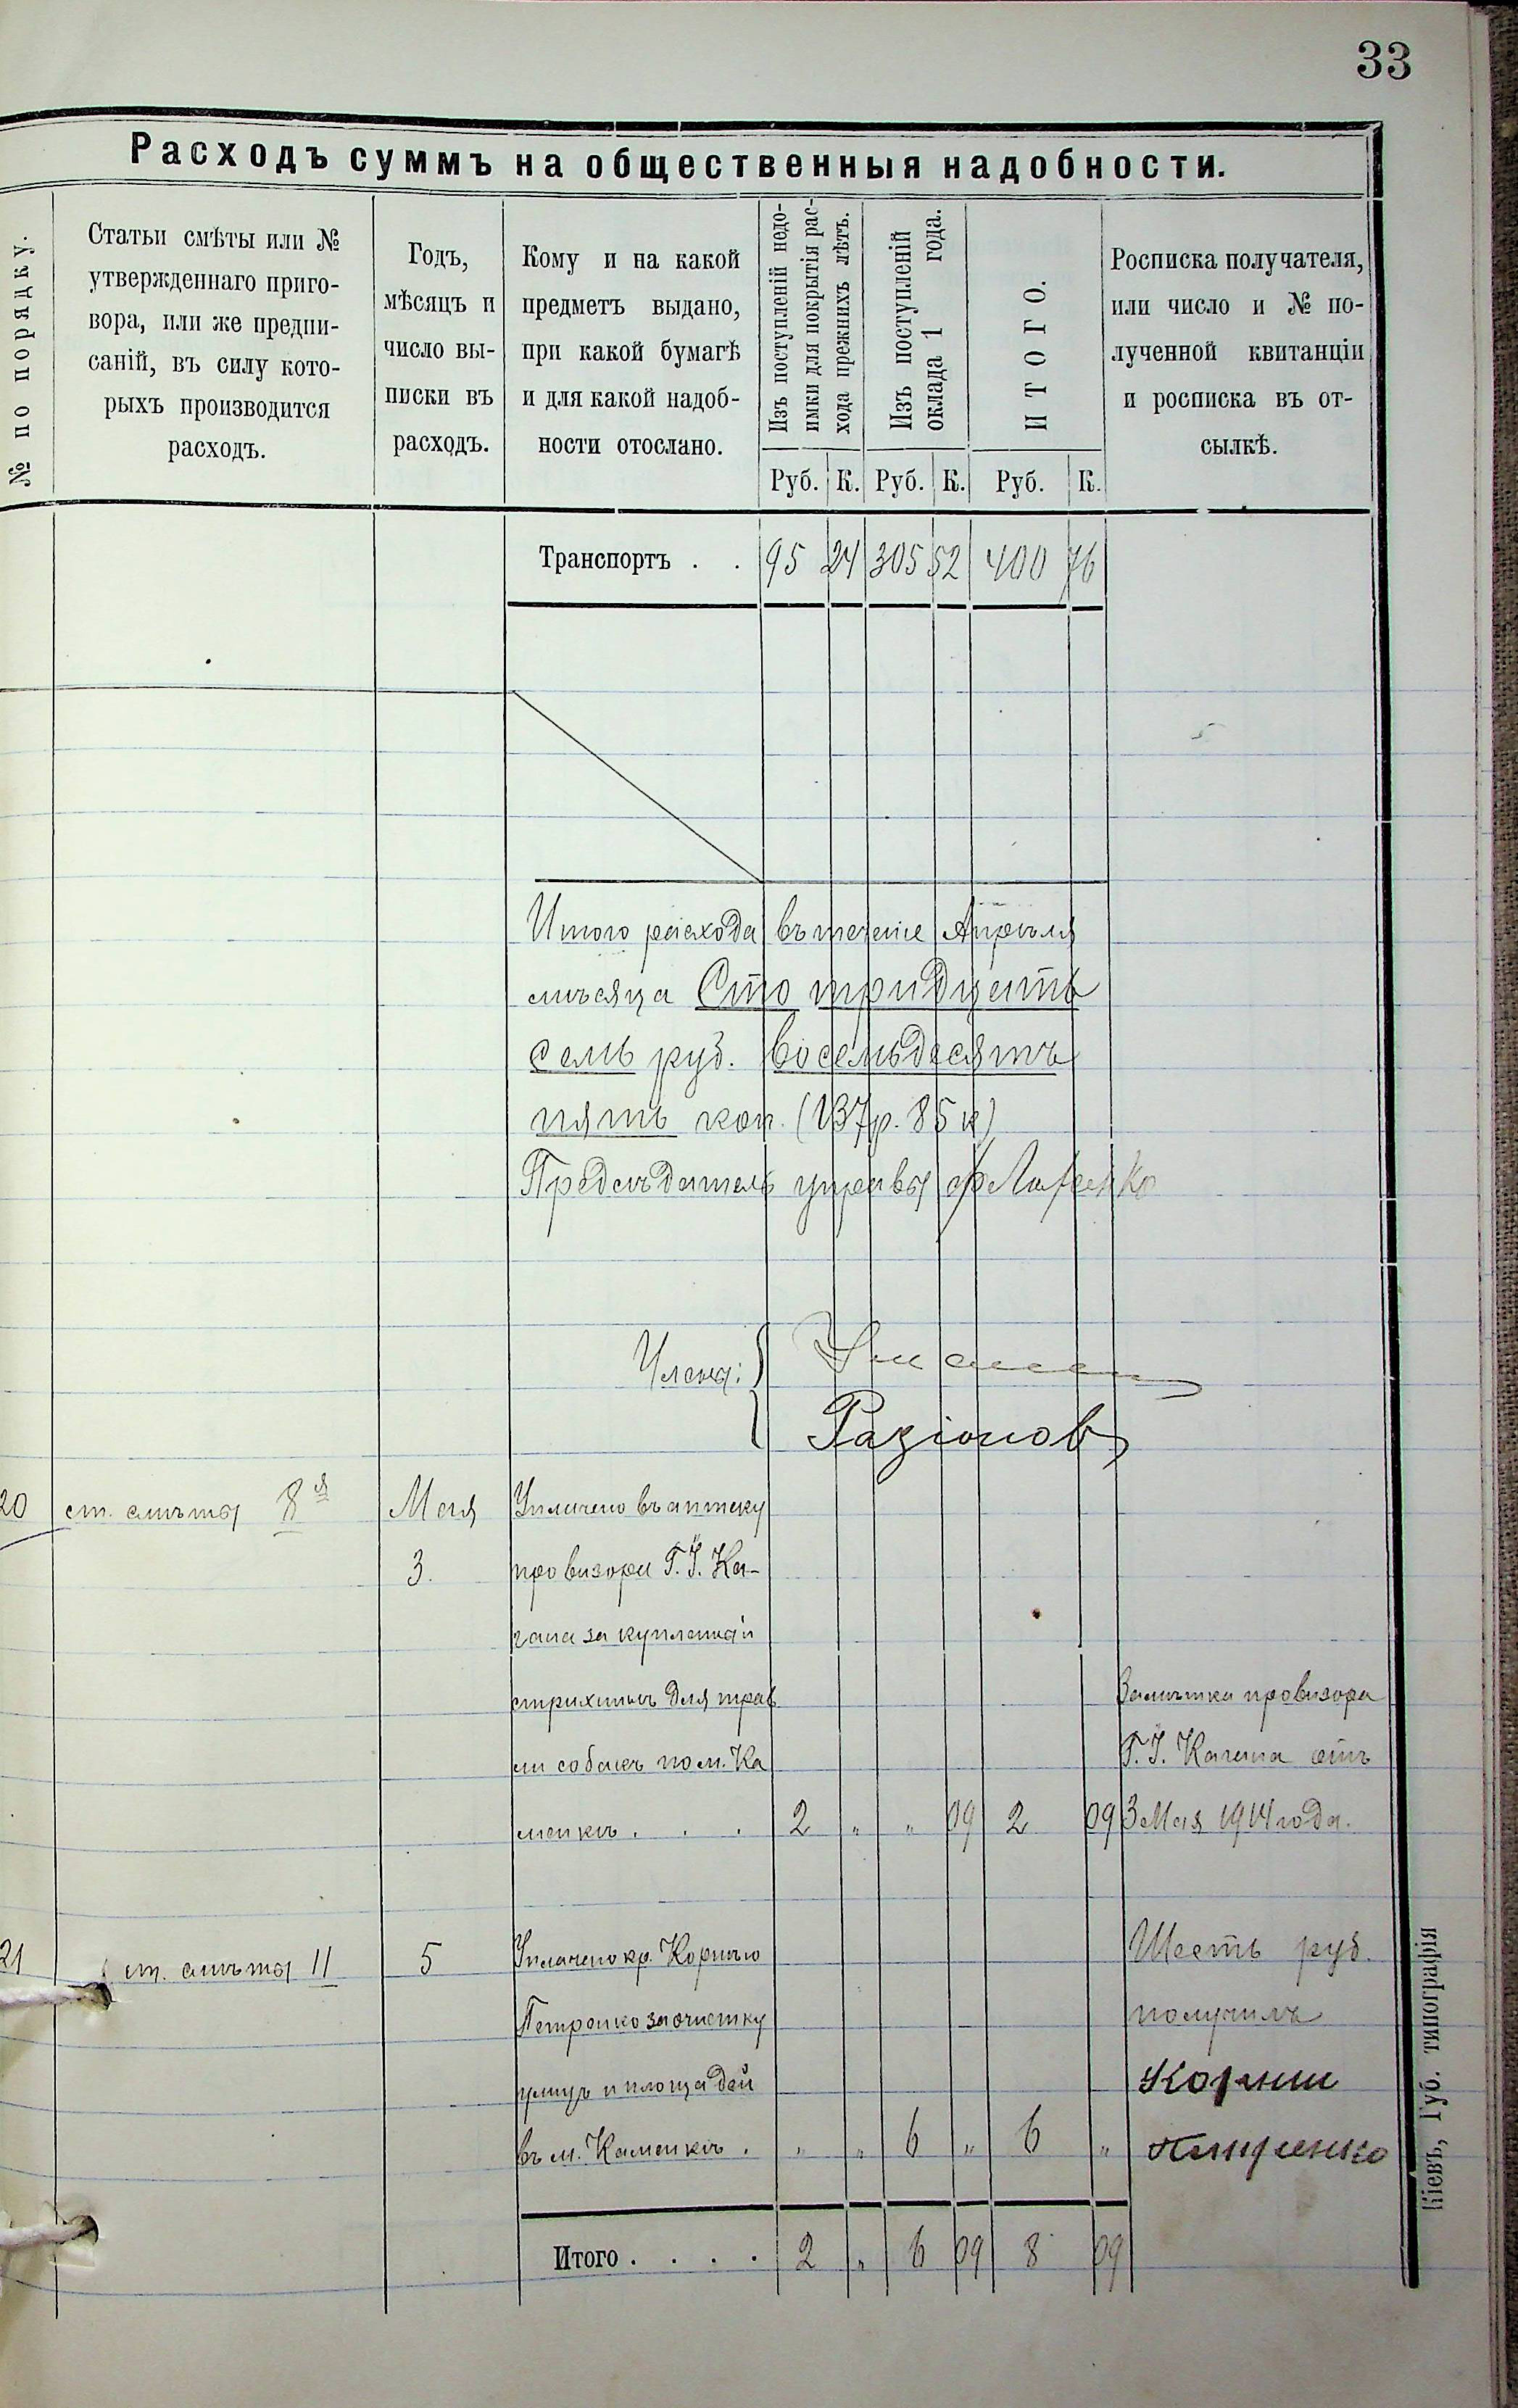 33
Расходъ суммъ на общественныя надобности.
№ по порядку.
Статьи смѣты или №
утвержденнаго приго-
вора, или же предпи-
саній, въ силу кото-
рыхъ производится
расходъ.
Годъ,
мѣсяцъ и
число вы-
писки въ
расходъ.
Кому и на какой
предметъ выдано,
при какой бумагѣ
и для какой надоб-
ности отослано.
Изъ поступленій недо-
имки для покрытія рас-
хода прежнихъ лѣтъ.
Изъ поступленій
оклада 1 года.
ИТОГО.
Росписка получателя,
или число и № по-
лученной квитанціи
и росписка въ от-
сылкѣ.
Руб. К. Руб. К. Руб. К.
Транспортъ . . 95 24 305 52 400 76
Итого расхода въ теченіе Апрѣля
мѣсяца Сто тридцать
семь руб. восемьдесятъ
пять коп. (137 р. 85 к)
Предсѣдатель управы
Члены:
Разіоновъ
20 ст. смѣты 8я Мая Уплачено въ аптеку
3. провизора Г. І. Ка-
гана за купленный
стрихнинъ для трав
ли собакъ по м. Ка
менкѣ . . . 2 „ „ 09 2 09
Замѣтка провизора
Г. І. Кагана отъ
3 Мая 1914 года.
21 ст. смѣты 11 5 Уплачено кр. Корнѣю
Петренко за очистку
улицъ и площадей
въ м. Каменкѣ . „ „ 6 „ 6 „
Шесть руб.
получилъ
Корнии
Итого . . . . 2 „ 6 09 8 09
Кіевъ, Губ. типографія